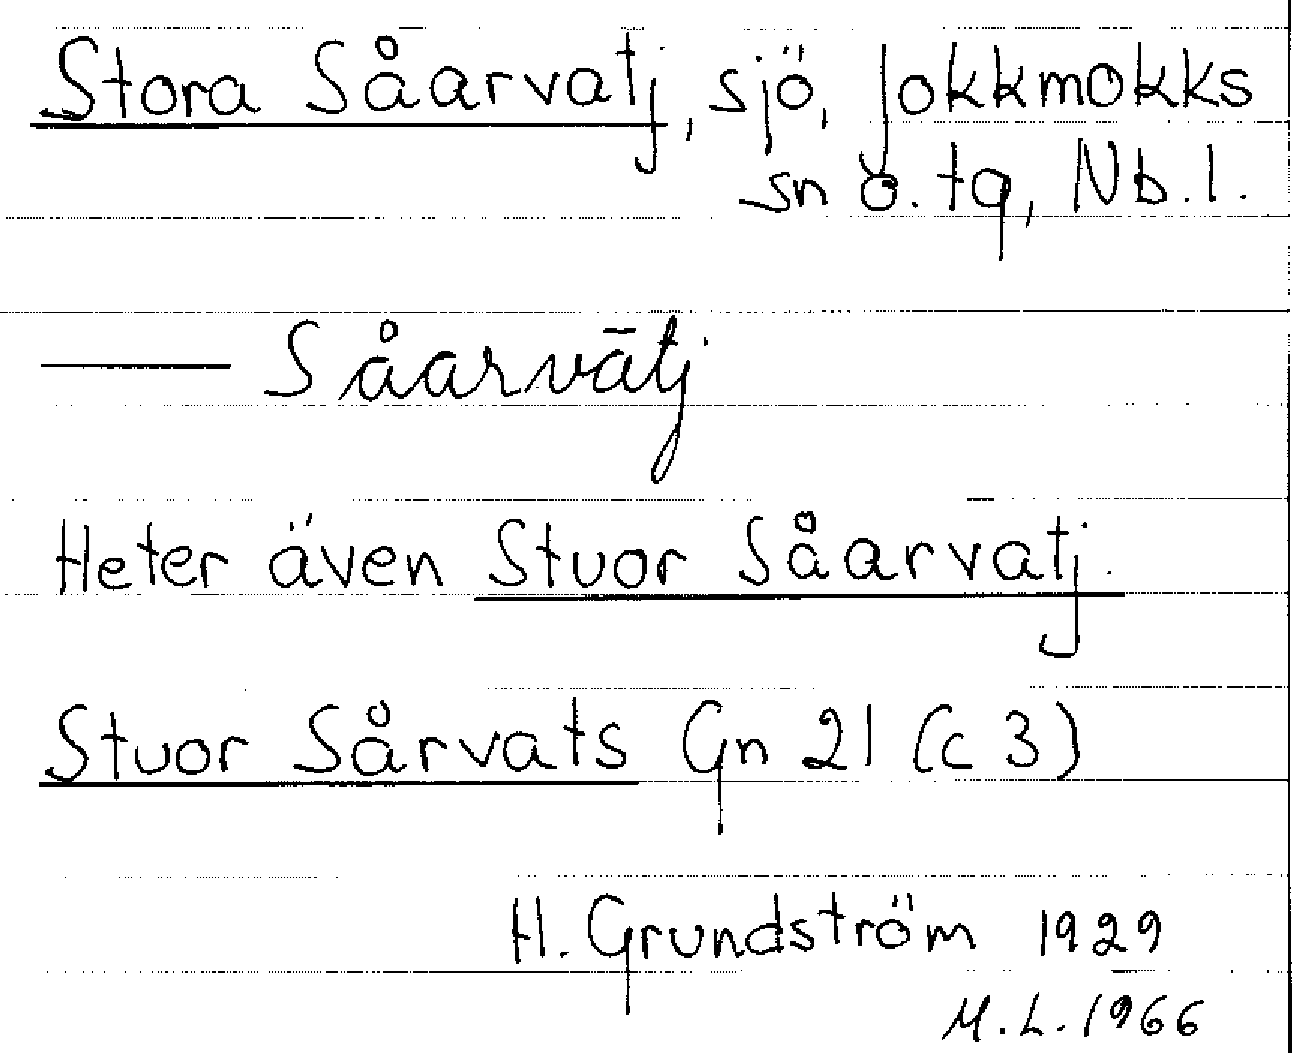 Stora Såarvatj, sjö, Jokkmokks
sn o. tg, Nb.l.
—— Såarvātj
Heter även Stuor Såarvatj.
Stuor Sårvats Gn 21 (c 3)
H. Grundström 1929
M.L. 1966